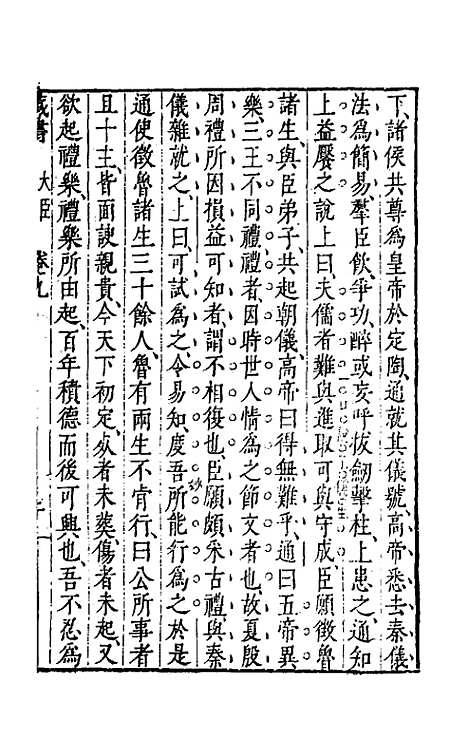 下諸侯共尊爲皇帝於定陶通就其儀號高帝悉去秦儀
法爲簡易羣臣飲爭功醉或妄呼拔劒擊柱上患之通知
上益饜之說上曰夫儒者難與進取可與守成臣願徵魯
諸生與臣弟子共起朝儀高帝曰得無難乎通曰五帝異
樂三王不同禮禮者因時世人情爲之節文者也故夏殷
周禮所因損益可知者謂不相復也臣願頗采古禮與秦
儀雜就之上曰可試爲之令易知度吾所能行爲之於是
通使徵魯諸生三十餘人魯有兩生不肯行曰公所事者
且十主皆面諛親貴今天下初定死者未葬傷者未起又
欲起禮樂禮樂所由起百年積德而後可興也吾不忍爲
藏書 大臣 卷九
妙